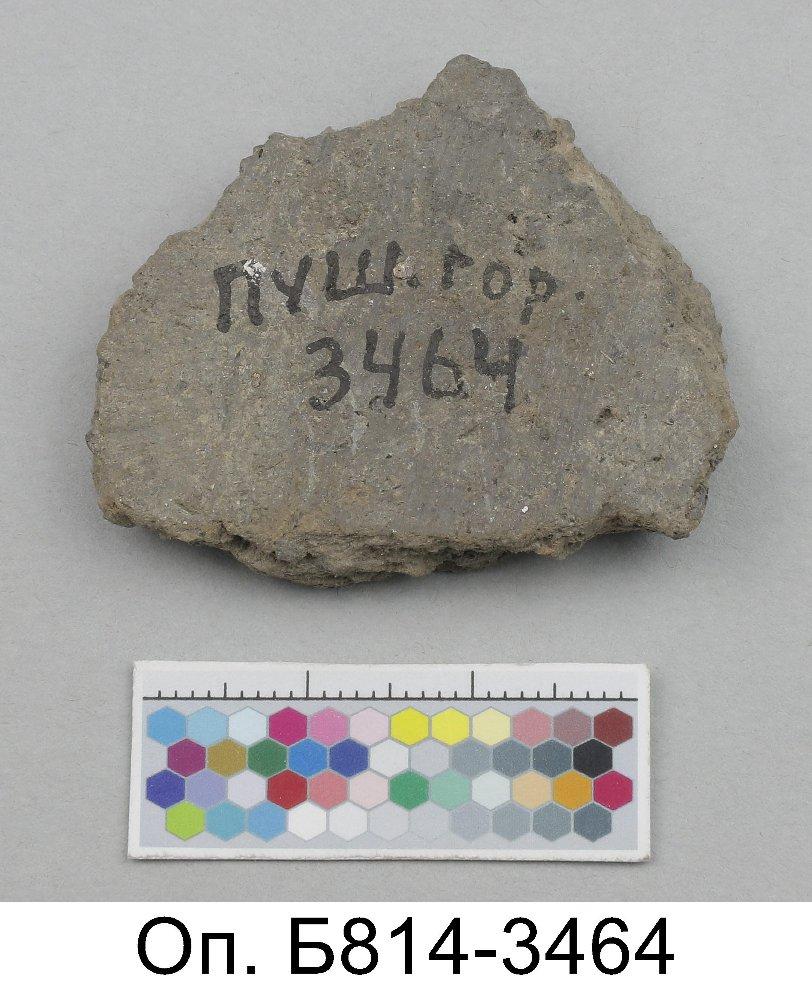 ПУШ. ГОР.
3464
Оп. Б814-3464